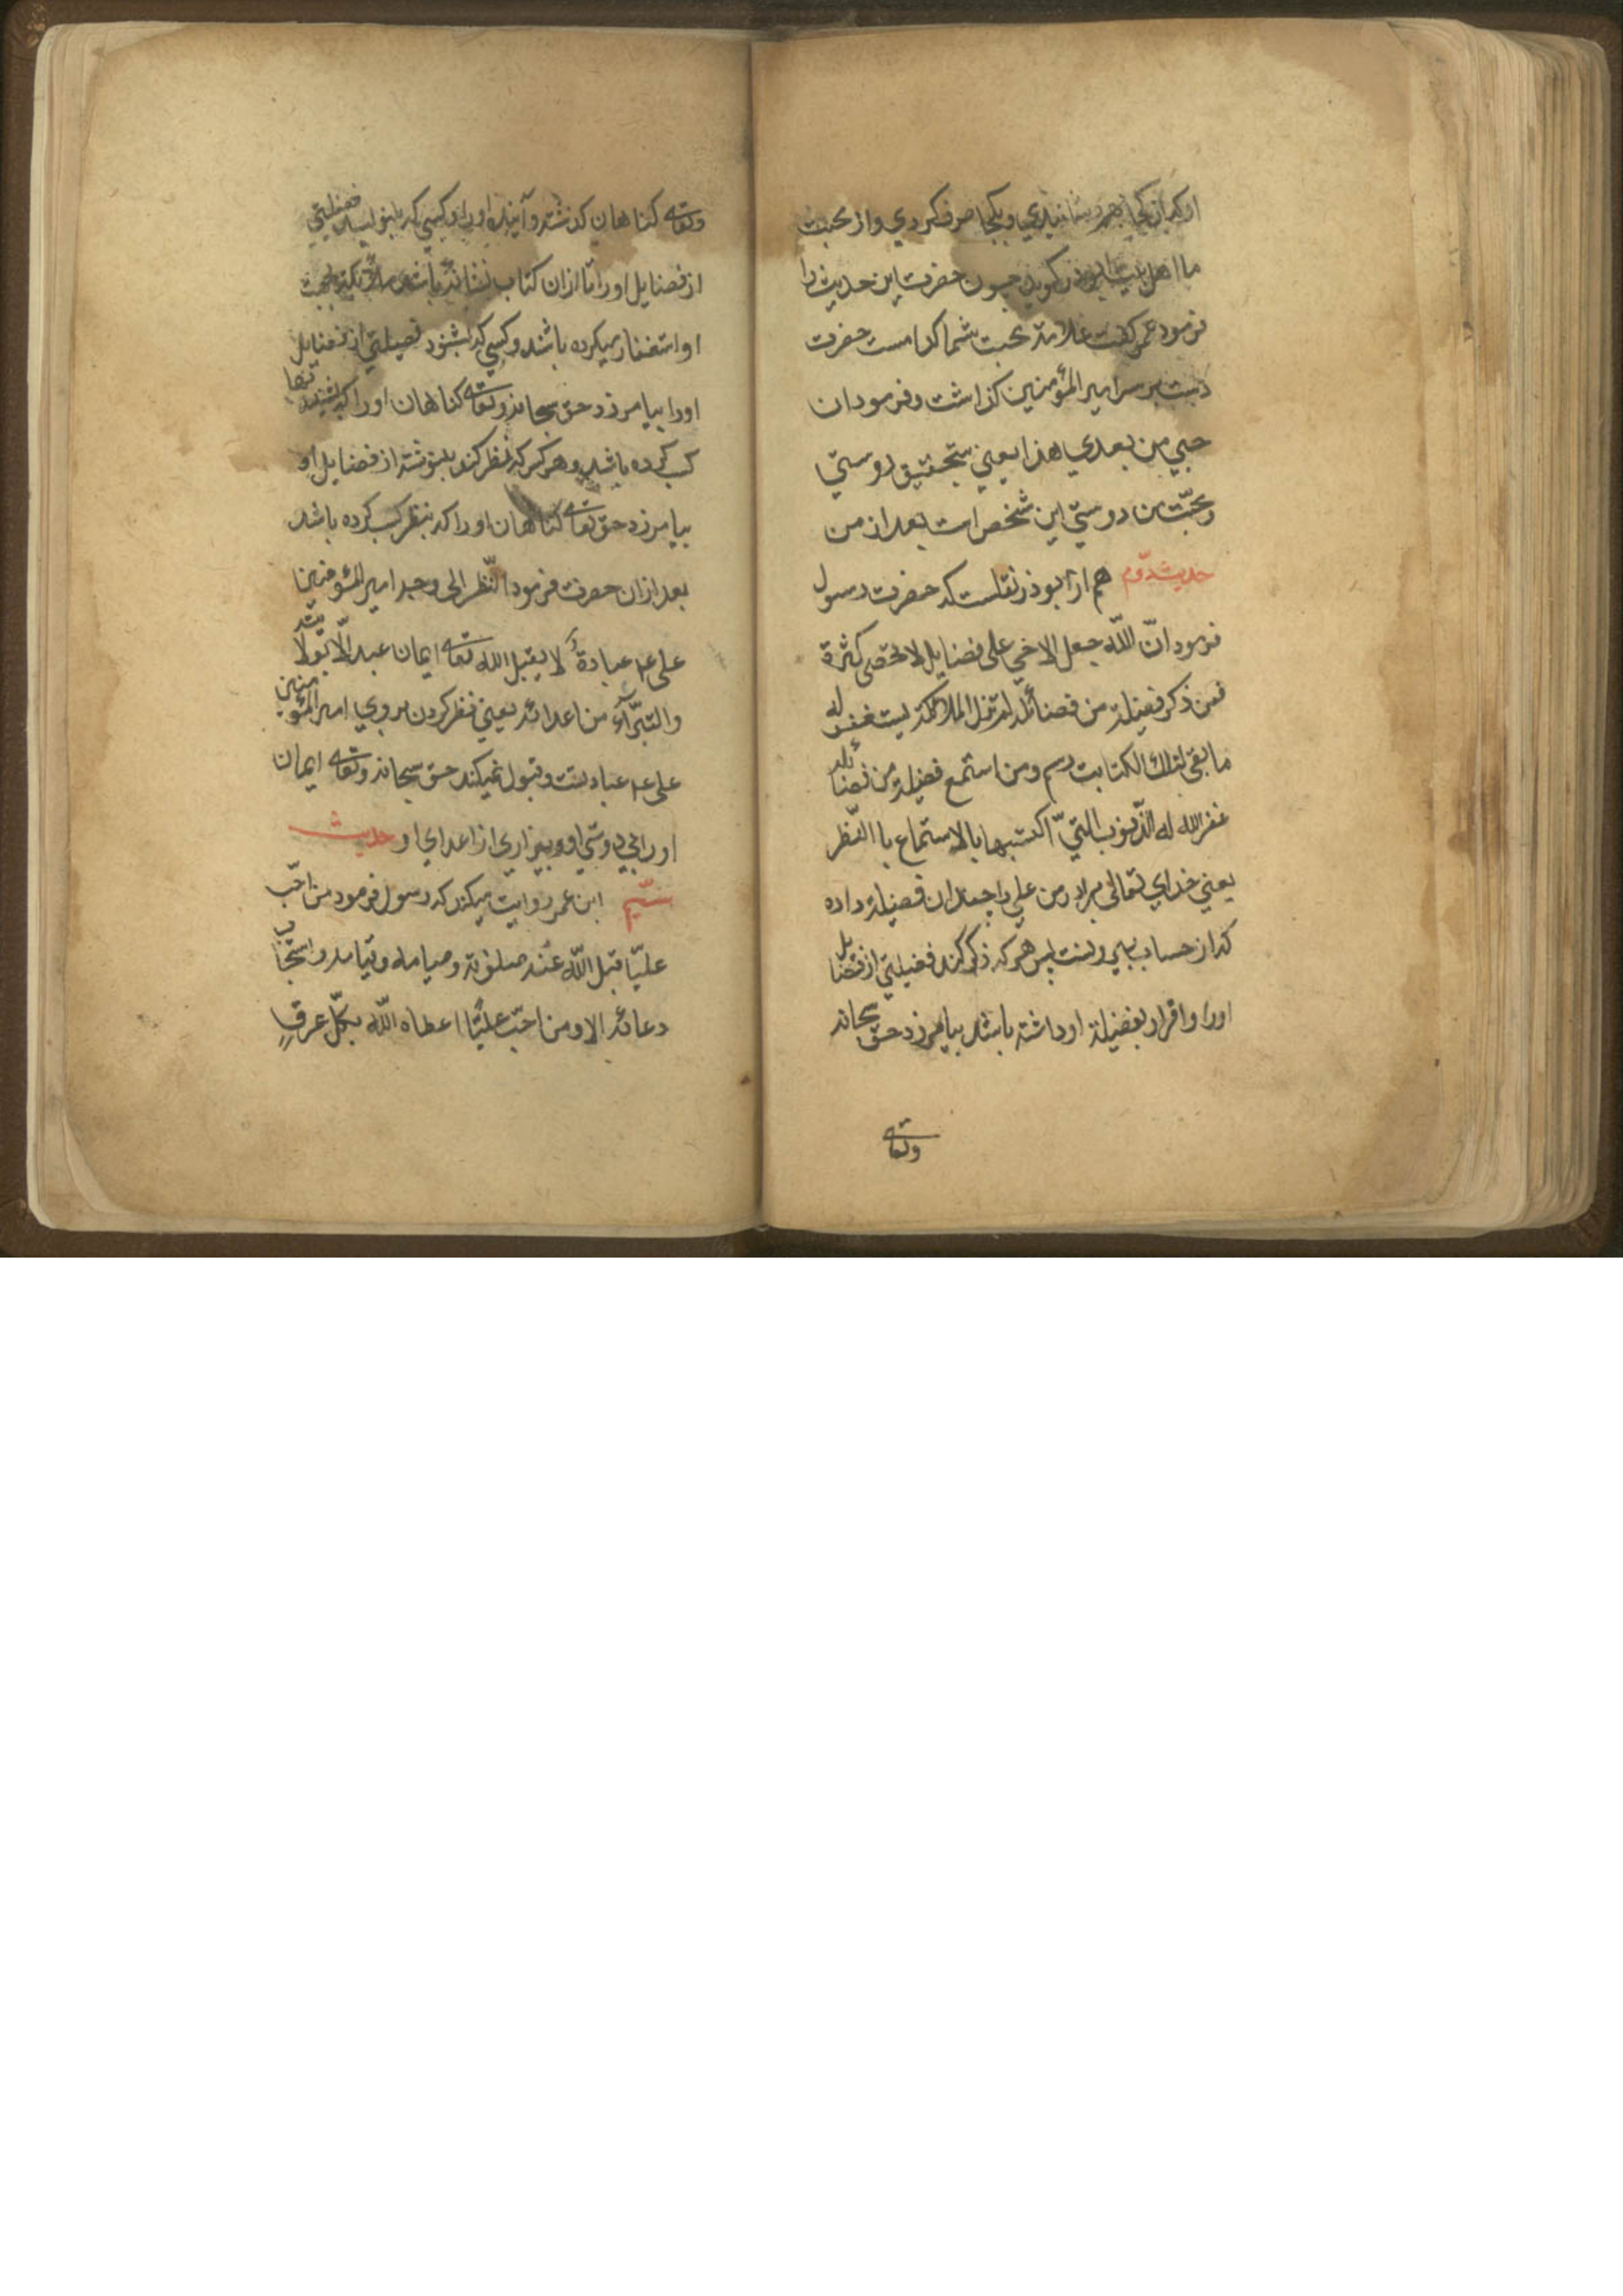 او که از کجا بهم رسانیدی و بکجا صرف کردی و از محبت
ما اهل بیت ابوذر کوید چون حضرت این حدیث را
فرمود عمر کفت علامة محبت شما کدامست حضرت
دست بر سر امیر المؤمنین کذاشت و فرمود ان
حبی من بعدی هذا یعنی بتحقیق دوستی
و محبّت من دوستی این شخص است بعد از من
حدیث دوّم هم از ابوذر نقلست که حضرت رسول
فرمود انّ اللّه جعل لاخی علی فضایل لا تحصی کثرة
فمن ذکر فضیلة من فضائله لم تزل الملائکة یستغفر له
ما بقی لتلک الکتابت رسم و من استمع فضیلة من فضائله
غفر الله له الذّنوب التّی اکتسبها بالاستماع یا النّظر
یعنی خدای تعالی برادر من علی را چندان فضیلة داده
که از حساب بیرونست پس هر که ذکر کند فضیلتی از فضایل
او را و اقرار بفضیلة او داشته باشد بیامرزد حق سبحانه
وتعالی
وتعالی کناهان کذشته و آینده او را و کسی که بنویسد فضیلتی
از فضایل او را تا از ان کتاب نشانه باشد ملائکه بجهت
او استغفار میکرده باشد و کسی که بشنود فضیلتی از فضایل
او را بیامرزد حق سبحانه وتعالی کناهان او را که بشنیدنها
کسب کرده باشد و هر کس که نظر کند بنوشته از فضایل او
بیامرزد حق تعالی کناهان او را که بنظر کسب کرده باشد
بعد از ان حضرت فرمود النّظر الی وجه امیر المؤمنین
علی ع م عبادة لا یقبل الله تعالی ایمان عبد الّا بولایته
والتبرّآء من اعدائه یعنی نظر کردن بروی امیر المؤمنین
علی ع م عبادتست و قبول نمیکند حق سبحانه وتعالی ایمان
او را بی دوستی او و بیزاری از اعدای او حدیث
سیّم ابن عمر روایت میکند که رسول فرمود من احبّ
علیّا قبل اللّه عنه صلوته و صیامه و قیامه و استجاب
دعائه الا و من احبّ علیّا اعطاه اللّه بکلّ عرقٍ